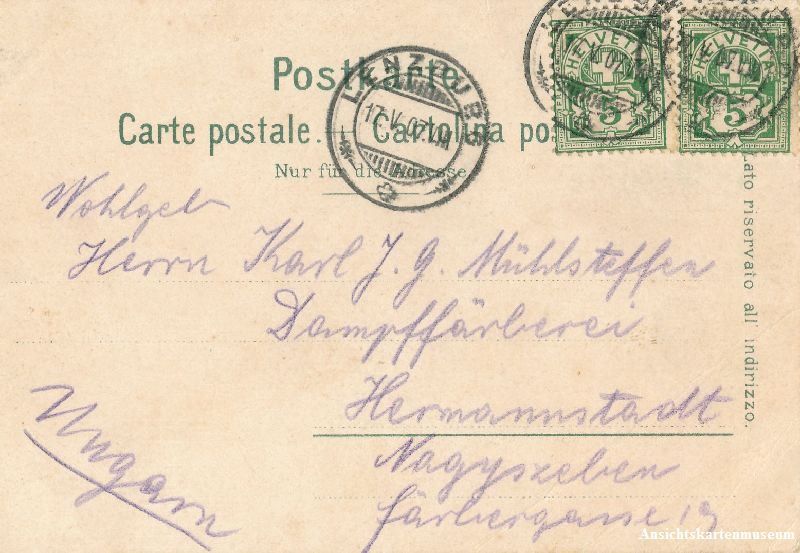 Postkarte.
Carte postale. — Cartolina po
Nur für die Adresse.
LENZBURG
17.V.01.
HELVETIA
5
HELVETIA
5
Lato riservato all' indirizzo.
Wohlgeb
Herrn Karl J. G. Mühlsteffen
Dampffärberei
Hermannstadt
Nagyszeben
Färbergasse
Ungarn
Ansichtskartenmuseum